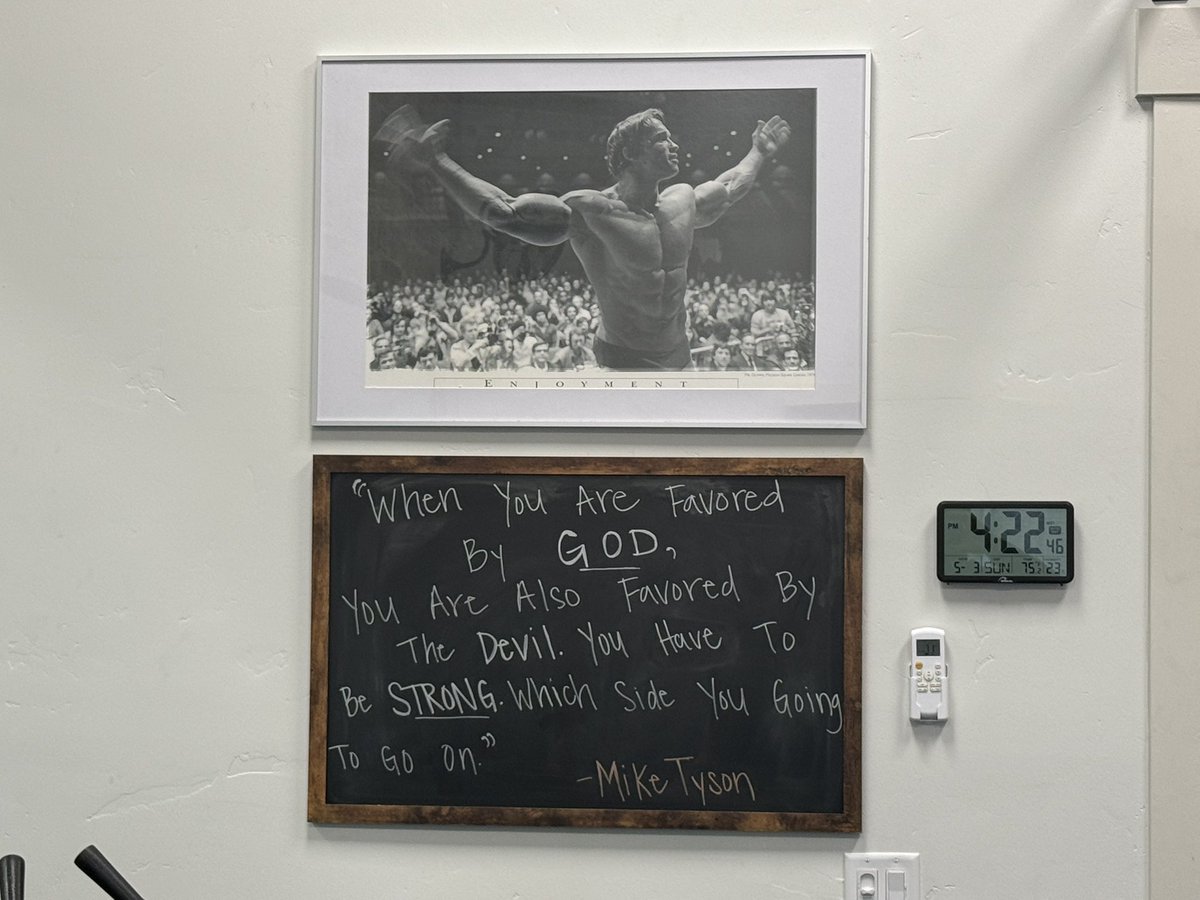 ENJOYMENT
"When You Are Favored
By GOD,
You Are Also Favored By
The Devil. You Have To
Be STRONG. Which Side You Going
To Go On."
-Mike Tyson
PM 4:22 46
5- 3 SUN 75 23